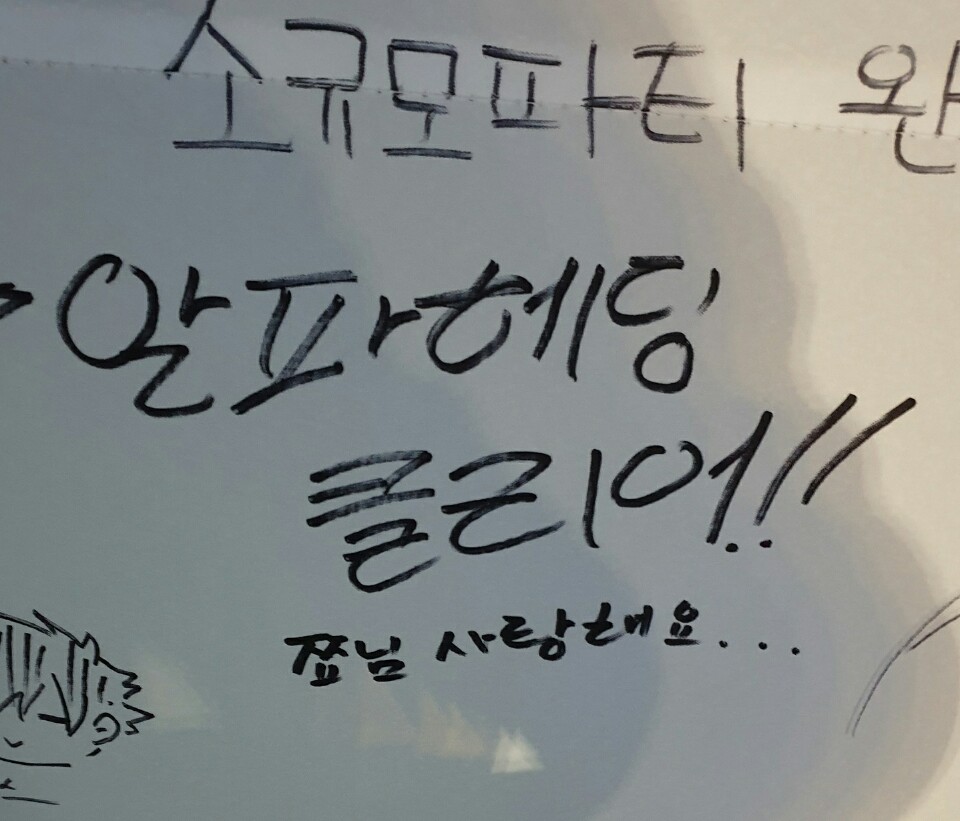 소규모파티 완
알파헤딩
클리어!!
쯉님 사랑해요...